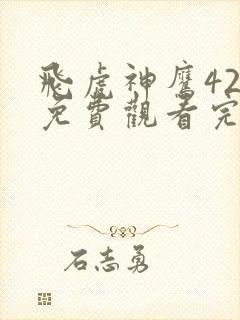 飛虎神鷹42
免費觀看完
石志勇